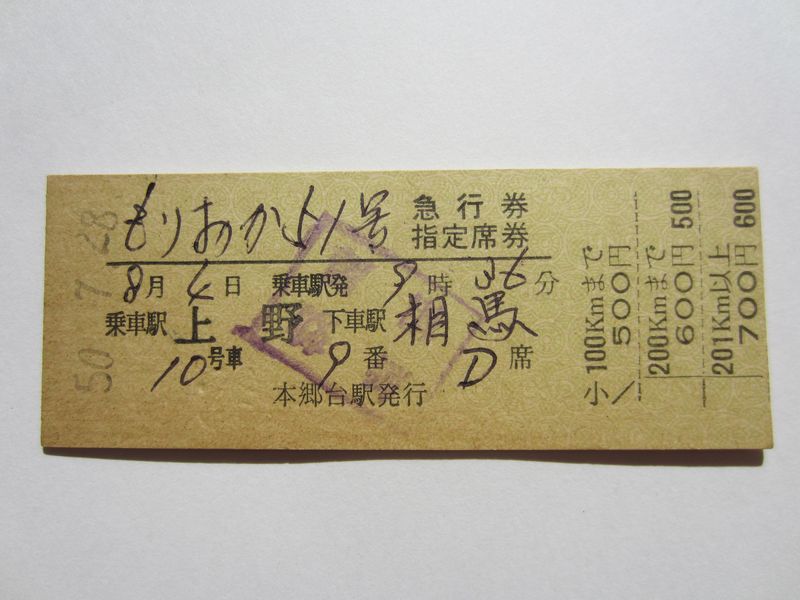 もりおか51号 急行券
指定席券
8月4日 乗車駅発 9時36分
乗車駅 上野 下車駅 相馬
10号車 9番 D席
本郷台駅発行
50.7.28
100Kmまで 500円
小/
200Kmまで 600円 500
201Km以上 700円 600